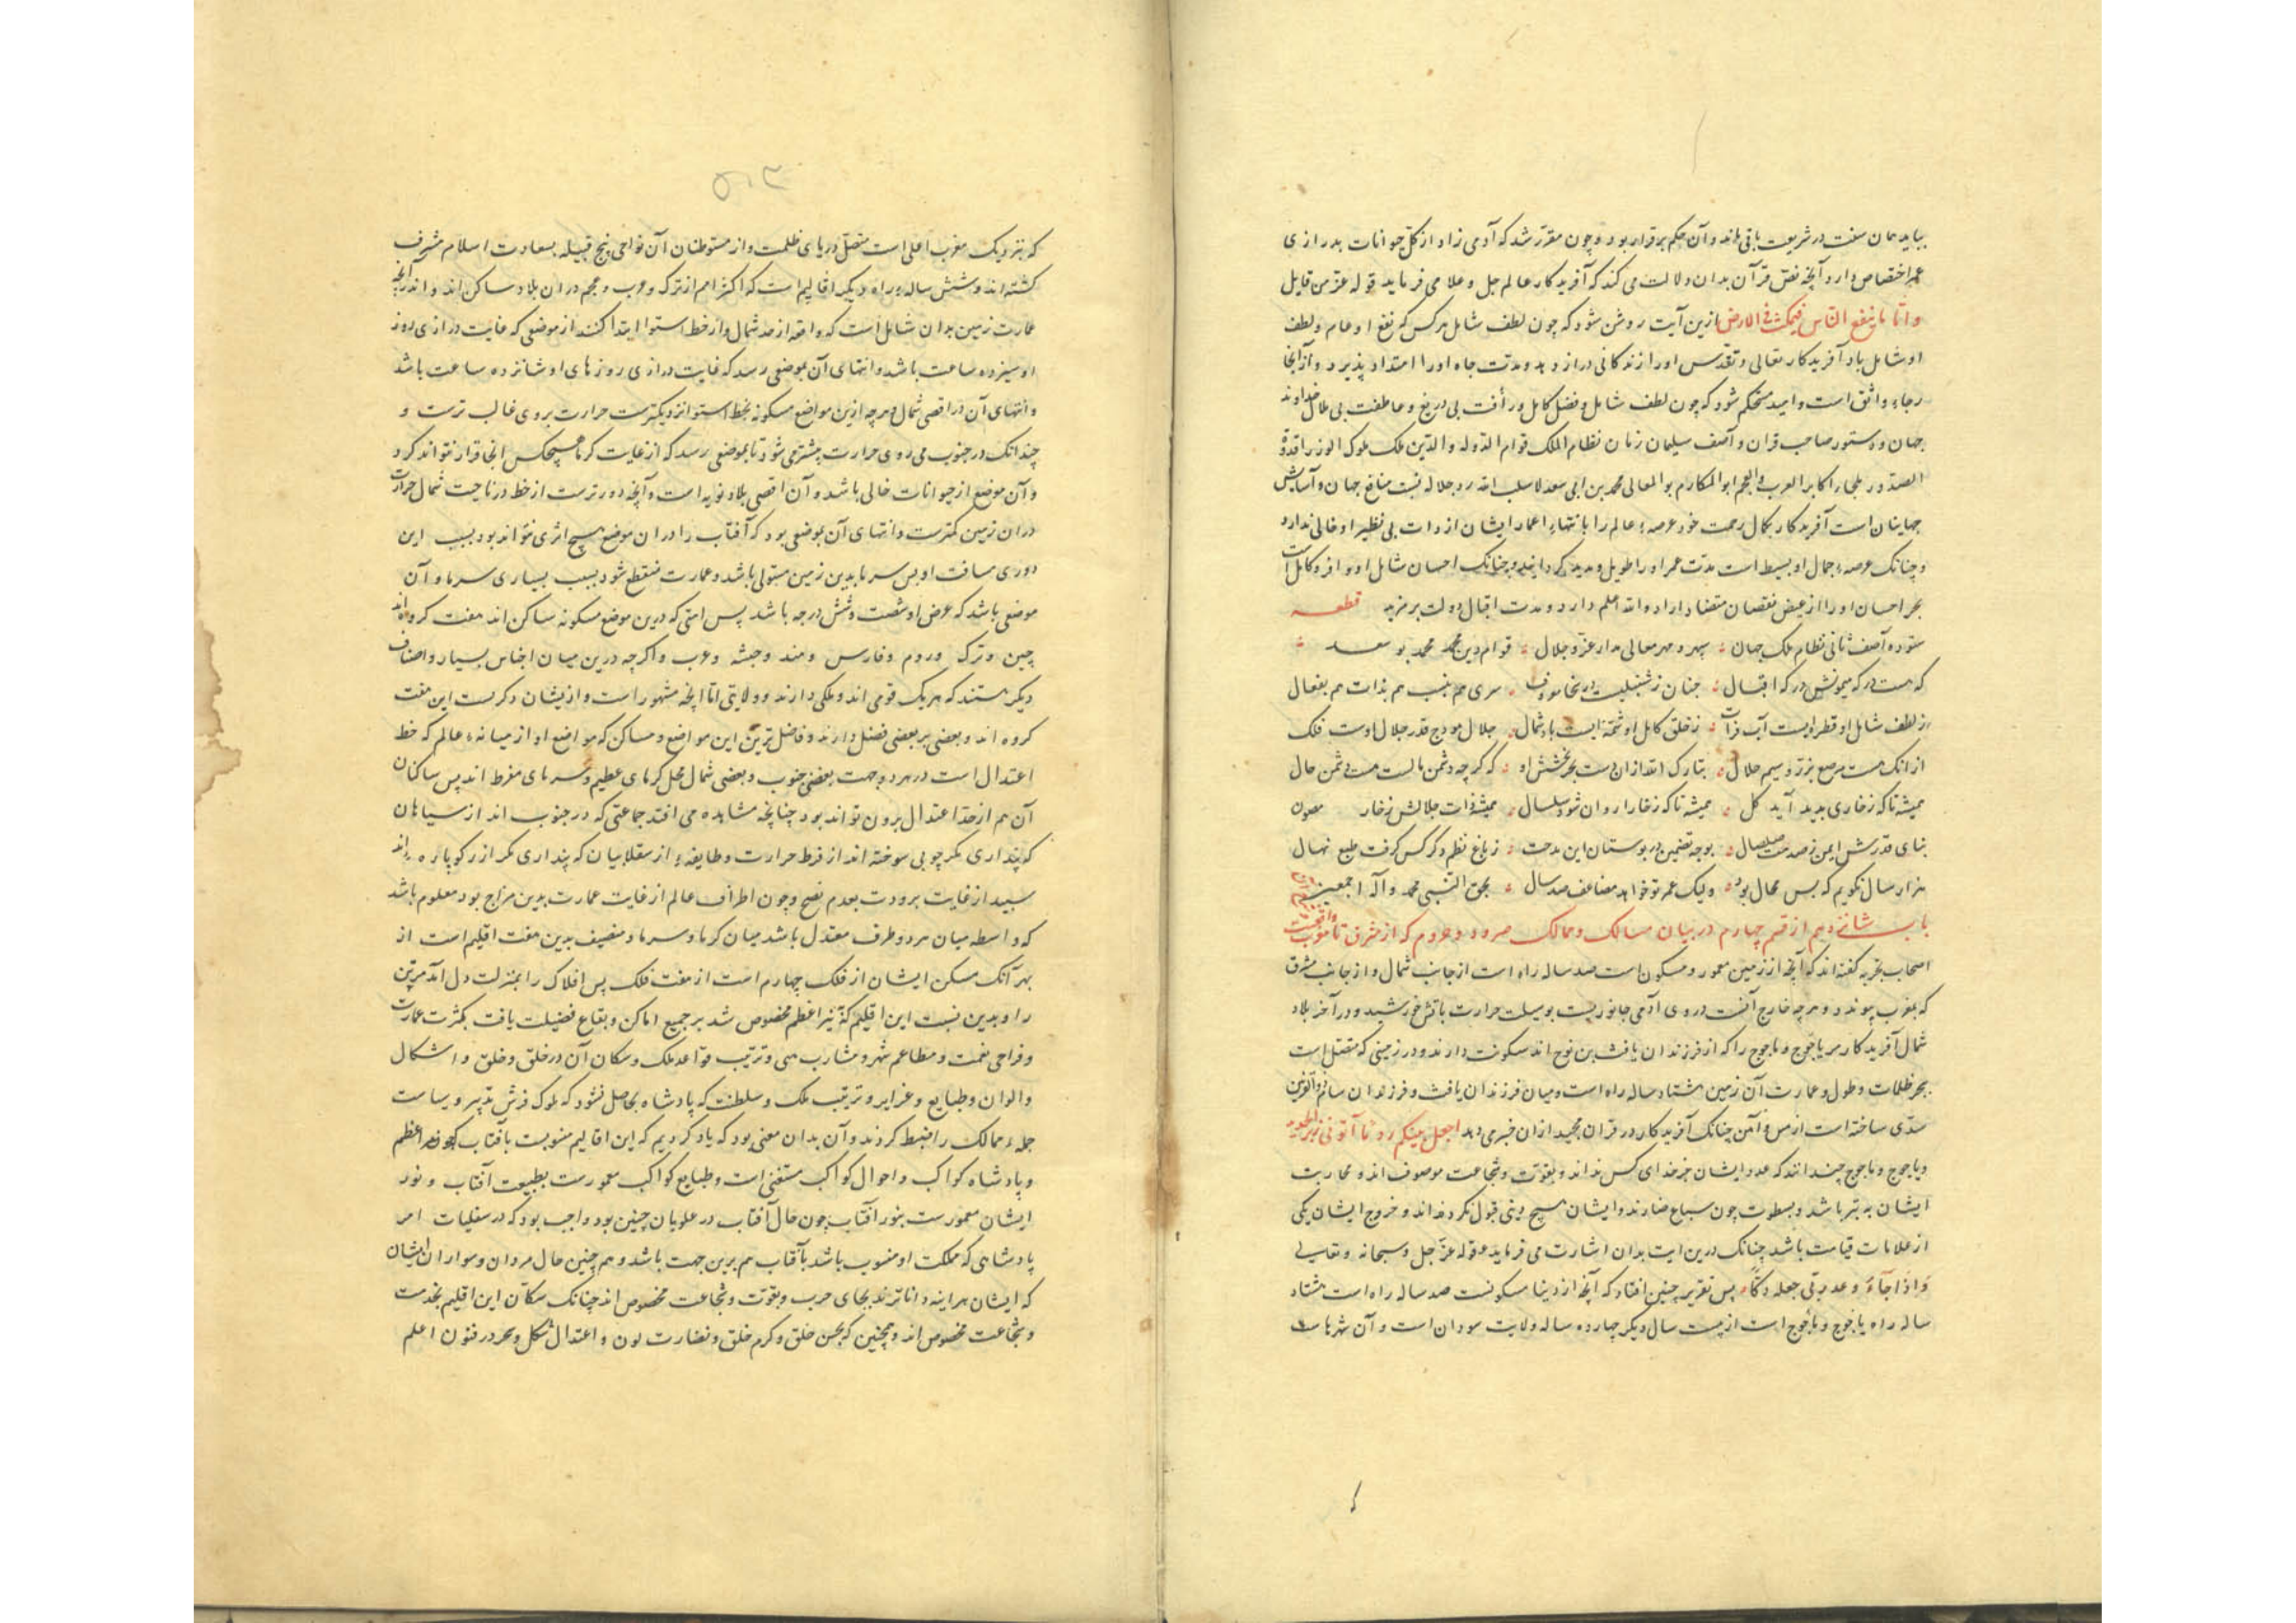 بباید همان سنت در شریعت باقی ماند و آن حکم برقرار بود و چون مقرر شد که آدمی زاد از کل حیوانات بدرازی
عمر اختصاص دارد آنچه نص قرآن بدان دلالت می کند که آفریدکار عالم جل و علا می فرماید قوله عز من قایل
و اما ما ینفع الناس فیمکث فی الارض ازین آیت روشن شود که چون لطف شامل هرکس که نفع او عام و لطف
او شامل باد آفریدکار تعالی و تقدس اورا زندکانی دراز دهد و مدت جاه اورا امتداد پذیرد و از انجا
رجاء واثق است و امید مستحکم شود که چون لطف شامل و فضل کامل و رأفت بی دریغ و عاطفت بی ملال خداوند
جهان و دستور صاحب قران و آصف سلیمان زمان نظام الملک قوام الدوله و الدین ملک ملوک الوزرا قدوة
الصدور ملجاء اکابر العرب و العجم ابو المکارم و المعالی محمد بن ابی سعد لا سلب الله جلاله منافع جهان و آسایش
جهانیان است آفریدکار بکمال رحمت خود عرصهء عالم را بانتهاء اعمار ایشان از ذات بی نظیر او خالی ندارد
و چنانک عرصهء جمال او بسیط است مدت عمر اورا طویل و مدید کرداند و چنانک احسان شامل او وافر و کامل است
بحر احسان اورا از غیض نقصان داراد والله اعلم دارد و مدت اقبال دولت بر مزید قطعه
ستوده آصف ثانی نظام ملک جهان سپهر و مهر معالی مدار عز و جلال قوام دین محمد محمد بو سعد
که هست درکه میمونش درکه اقبال سری هم بنسب هم بذات هم بفعال
ز لطف شامل او قطره ایست آب فرات ز خلق کامل او شمه ایست باد شمال جلال قدر جلال اوست فلک
ازانک هست مرصع بزر و سیم حلال تبارک الله ازان دست بحر بخشش او که کرچه دشمن مالست هست دشمن مال
همیشه تا که ز خاری بدید آید کل همیشه تا که ز خارا روان شود سلسال همیشه ذات جلالش ز خار مصون
بنای قدرش ایمن ز صدمت صلصال بوجه تضمین در بوستان این مدحت ز باغ نظم دکر کس کرفت طبع نهال
هزار سال نکویم که بس محال بود ولیک عمر تو خواهم مضاعف صد سال بحق النبی محمد و آله اجمعین
باب شانزدهم از قسم چهارم در بیان مسالک و ممالک که از مشرق تا مغرب واقعست
اصحاب تجربه کفته اند که آنچه از زمین معمور و مسکون است صد ساله راه است از جانب شمال و از جانب مشرق
که بمغرب پیوندد و هرچه خارج آنست در وی آدمی و جانور نیست بوسیلت حرارت تابش خورشید و در آخر بلاد
شمال آفریدکار مر یاجوج و ماجوج را که از فرزندان یافث بن نوح اند سکونت دارند و در زمینی که متصل است
ببحر ظلمات و طول و عمارت آن زمین هشتاد ساله راه است و میان فرزندان یافث و فرزندان سام ذوالقرنین
سدی ساخته است از مس و آهن چنانک آفریدکار در قران مجید ازان خبر می دهد اجعل بینکم ردما آتونی زبر الحدید
و یاجوج و ماجوج چندانند که عدد ایشان جز خدای کس نداند و بقوت و شجاعت موصوف اند و محاربت
ایشان به تیر باشد و بسطوت چون سباع ضارند و ایشان هیچ دینی قبول نکرده اند و خروج ایشان یکی
از علامات قیامت باشد چنانک درین ایت بدان اشارت می فرماید قوله عز و جل و سبحانه و تعالی
و اذا جاء وعد ربی جعله دکاء پس تقریر چنین افتاد که آنچه از دنیا مسکونست صد ساله راه است هشتاد
ساله راه یاجوج و ماجوج است از بیست سال دیکر چهارده ساله ولایت سودان است و آن شهرها ست
۵۰۳
که بنزدیک مغرب اعلی است متصل دریای ظلمت و از متوطنان آن نواحی پنج قبیله بسعادت اسلام مشرف
کشته اند و شش ساله راه دیکر اقالیم است که اکثر امم از ترک و عرب و عجم دران بلاد ساکن اند و آنچه
عمارت زمین بدان شامل است که واقع از حد شمال و از خط استوا ابتدا کنند از موضعی که غایت درازی روز
او سیزده ساعت باشد و انتهای آن بموضعی رسد که غایت درازی روزهای او شانزده ساعت باشد
و انتهای آن در اقصی شمال و هرچه ازین مواضع مسکونه بخط استوا نزدیکترست حرارت بروی غالب ترست و
چندانک در جنوب می روی حرارت بیشتر می شود تا بموضعی رسد که از غایت کرما هیچکس انجا قرار نتواند کرد
و آن موضع از حیوانات خالی باشد و آن اقصی بلاد نوبه است و آنچه دورترست از خط در ناحیت شمال حرارت
دران زمین کمترست و انتهای آن بموضعی بود که آفتاب را دران موضع هیچ اثری نتواند بود بسبب این
دوری مسافت او پس سرما بدین زمین مستولی باشد و عمارت منقطع شود بسبب بسیاری سرما و آن
موضعی باشد که عرض او شصت و شش درجه باشد پس امتی که درین موضع مسکونه ساکن اند هفت کروه اند
چین و ترک و روم و فارس و هند و حبشه و عرب و اکرچه درین میان اجناس بسیار و اصناف
دیکر هستند که هر یک قومی اند و ملکی دارند و ولایتی اما انچه مشهور است و از یشان ذکریست این هفت
کروه اند و بعضی بر بعضی فضل دارند و فاضل ترین این مواضع و مساکن که مواضع او از میانهء عالم که خط
اعتدال است در هر دو جهت بعضی جنوب و بعضی شمال محل کرمای عظیم و سرمای مفرط اند پس ساکنان
آن هم از حد اعتدال برون تواند بود چنانچه مشاهده می افتد جماعتی که در جنوب اند از سیاهان
که پنداری مکر چوبی سوخته اند از فرط حرارت و طایفهء از سقلابیان که پنداری مکر از رکو پاره اند
سپید از غایت برودت بعدم نضج و چون اطراف عالم از غایت عمارت بدین مزاج بود معلوم باشد
که واسطه میان هر دو طرف معتدل باشد میان کرما و سرما و منصف بدین هفت اقلیم است از
بهر آنک مسکن ایشان از فلک چهارم است از هفت فلک پس افلاک را بمنزلت دل آمد مر تن
را و بدین نسبت این اقلیم که بنیر اعظم مخصوص شد بر جمیع اماکن و بقاع فضیلت یافت بکثرت عمارت
و فراخی نعمت و مطاعم و مشارب هنی و ترتیب قواعد ملک و سکان آن در خلق و خلق و اشکال
و الوان و طبایع و غرایز و ترتیب ملک و سلطنت که پادشاه بحاصل نشود که ملوک فرش تدبیر و سیاست
جملهء ممالک را ضبط کردند و آن بدان معنی بود که یاد کردیم که این اقالیم منسوبست بآفتاب اعظم
و پادشاه کواکب و احوال کواکب مستغنی است و طبایع کواکب معمورست بطبیعت آفتاب و نور
ایشان معمورست بنور آفتاب چون حال آفتاب در علویان چنین بود واجب بود که در سفلیات امر
پادشاهی که مملکت او منسوب باشد بآفتاب هم برین جهت باشد و هم چنین حال مردان و سواران ایشان
که ایشان هراینه داناترند بجای حرب و بقوت و شجاعت مخصوص اند چنانک سکان این اقلیم بخدمت
و شجاعت مخصوص اند و همچنین که بحسن خلق و کرم خلق و نضارت لون و اعتدال شکل و در فنون اعلم